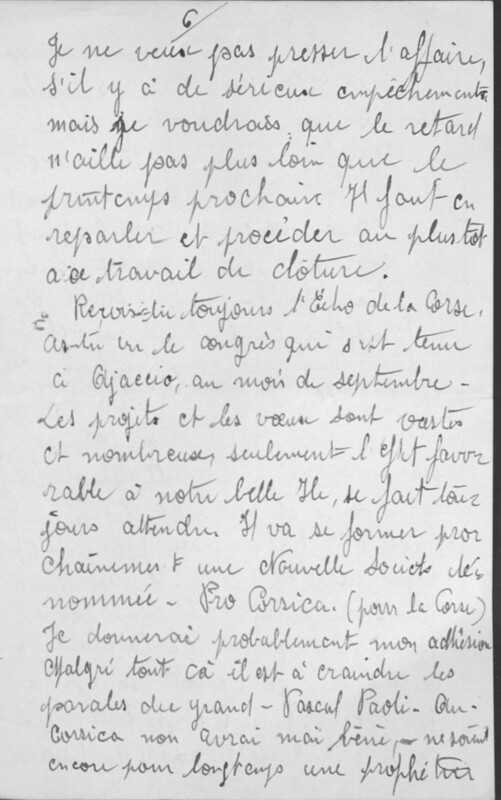 6
Je ne veux pas presser l'affaire,
s'il y a de sérieux empêchements,
mais je voudrais que le retard
n'aille pas plus loin que le
printemps prochain. Il faut en
reparler et procéder au plustôt
a ce travail de clôture.
Reçois-tu toujours l'Echo de la Corse.
As-tu vu le congrès qui s'est tenu
à Ajaccio, au mois de septembre -
Les projets et les vœux sont vastes
et nombreux, seulement l'effet favo
rable à notre belle Ile, se fait tou
jours attendre. Il va se former pro
chainement une Nouvelle Société dé
nommée - Pro Corsica. (pour la Corse)
Je donnerai probablement mon adhésion
Malgré tout cà il est à craindre les
paroles du grand - Pascal Paoli - Oh
Corsica non avrai mai bène, - ne soient
encore pour longtemps une prophétie